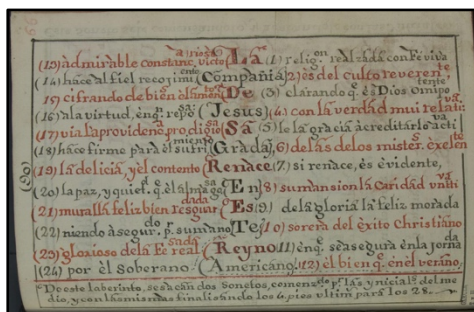 (13) admirable constanc. victo a riosa (La (1) relig.on realzada con Fe viva
(14) hace al fiel recogimi ento (Compañia (2) es del culto reveren te
(15) cifrando de bien el aumen to (De (3) clarando q.e a Dios Omnipo tente
(16) a la virtud, en q.e repo sa (Jesus (4) con la verdad mui relati va
(17) via la providenc.a prodigio sa (Sa (5) le la gracia à creditarlo acti va
(18) hace firme para el sufri miento (Grada, (6) de las de los mister.s exelen te
(19) la delicia, y el contento (Renace (7) si renace, es evidente,
(20) la paz, y quiet.d q.e el alma go sa (En (8) su mansion la Caridad unti va
(21) muralla feliz bien resguar dada (Es (9) de la gloria la feliz morada
(22) niendo à segur. p.r su mano (Te (10) sorera del èxito Christiano
(23) glorioso de la Fe real sada (Reyno (11) en q.e se asegura en la jorna da
(24) por èl Soberano (Americano, (12) el bien q.e en el verano,
(90)
De este laberinto, se sacan dos Sonetos, comenz.do p.r las ynicial.s del me
dio, y con las mismas finalisando los 4. pies ultim.s para los 28.